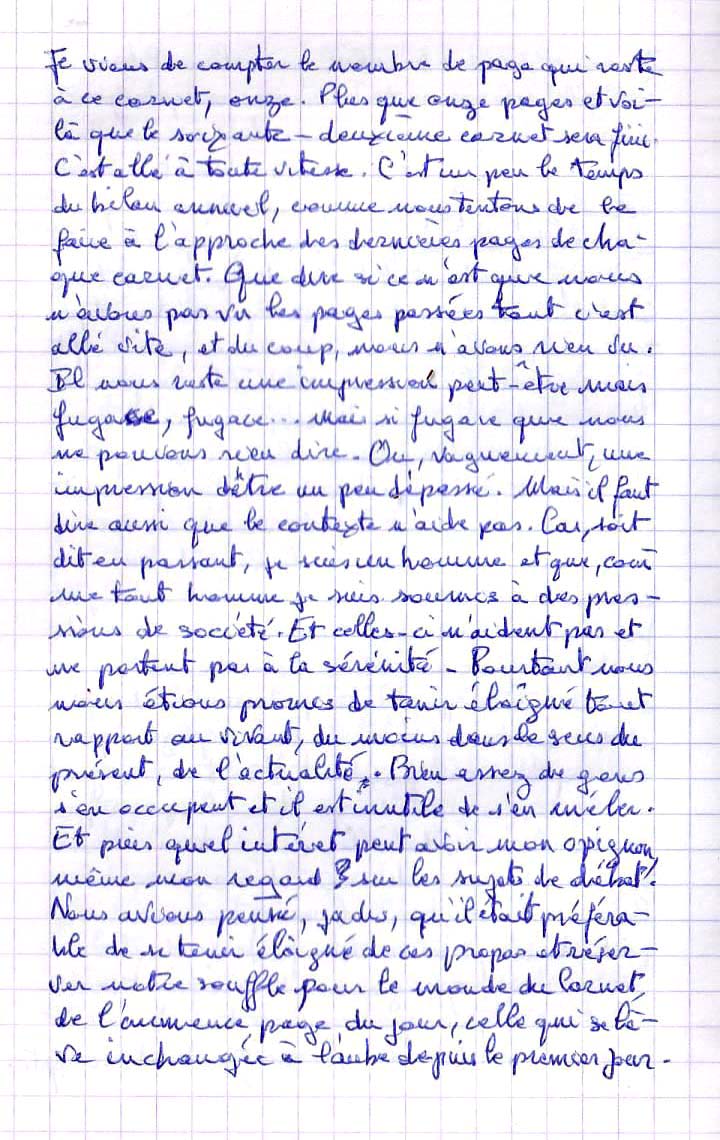 Je viens de compter le nombre de page qui reste
à ce carnet, onze. Plus que onze pages et voi-
là que le soixante-deuxième carnet sera fini.
C'est allé à toute vitesse. C'est un peu le temps
du bilan annuel, comme nous tentons de le
faire à l'approche des dernières pages de cha-
que carnet. Que dire si ce n'est que nous
n'avons pas vu les pages passées tant c'est
allé vite, et du coup, nous n'avons rien vu.
Il nous reste une impression peut-être mais
fugace, fugace... mais si fugace que nous
ne pouvons rien dire. Ou, vaguement, une
impression d'être un peu dépassé. Mais il faut
dire aussi que le contexte n'aide pas. Car, soit
dit en passant, je suis un homme et que, com
me tout homme je suis soumis à des pres-
sions de société. Et celles-ci n'aident pas et
ne portent pas à la sérénité - Pourtant nous
nous étions promis de tenir éloigné tout
rapport au vivant, du moins dans le sens du
présent, de l'actualité. Bien assez de gens
s'en occupent et il est inutile de s'en mêler.
Et puis quel intérêt peut avoir mon opignon,
même mon regard sur les sujets de débat?
Nous avions pensé, jadis, qu'il était préféra-
ble de se tenir éloigné de ces propos et réser-
ver notre souffle pour le monde du Carnet,
de l'immense page du jour, celle qui se lè-
ve inchangée à l'aube depuis le premier jour.